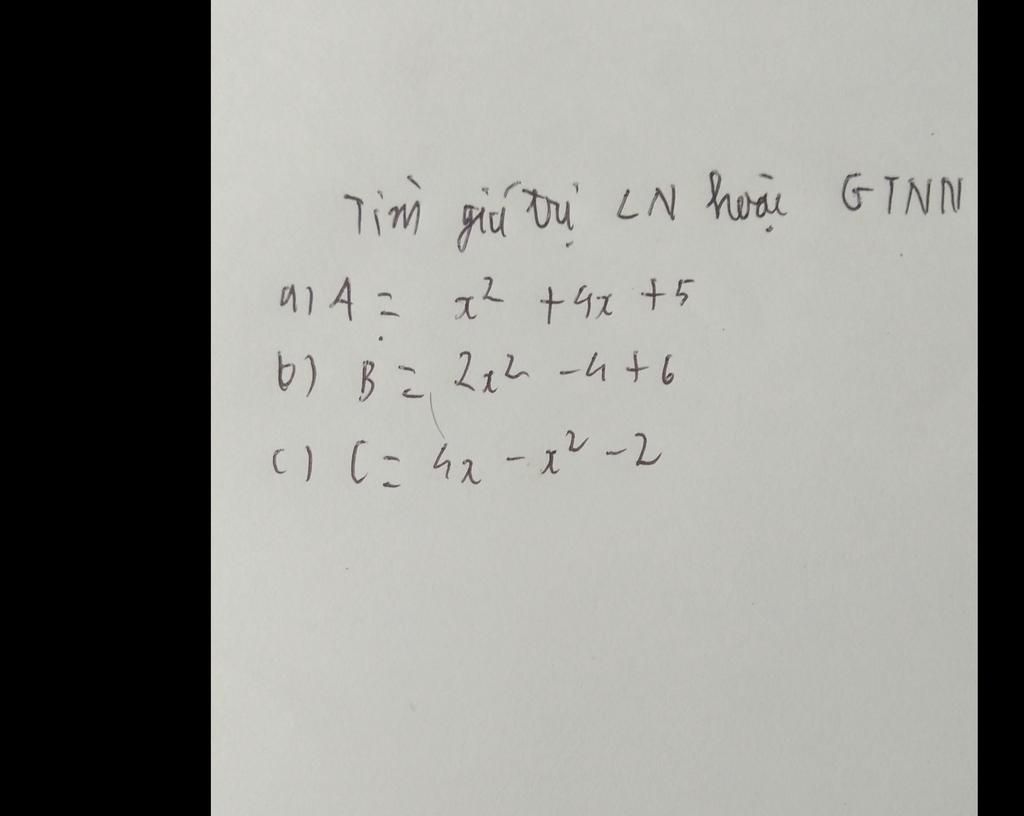 Tìm giá trị LN hoặc GTNN
a) A = x² + 4x + 5
b) B = 2x² - 4 + 6
c) C = 4x - x² - 2